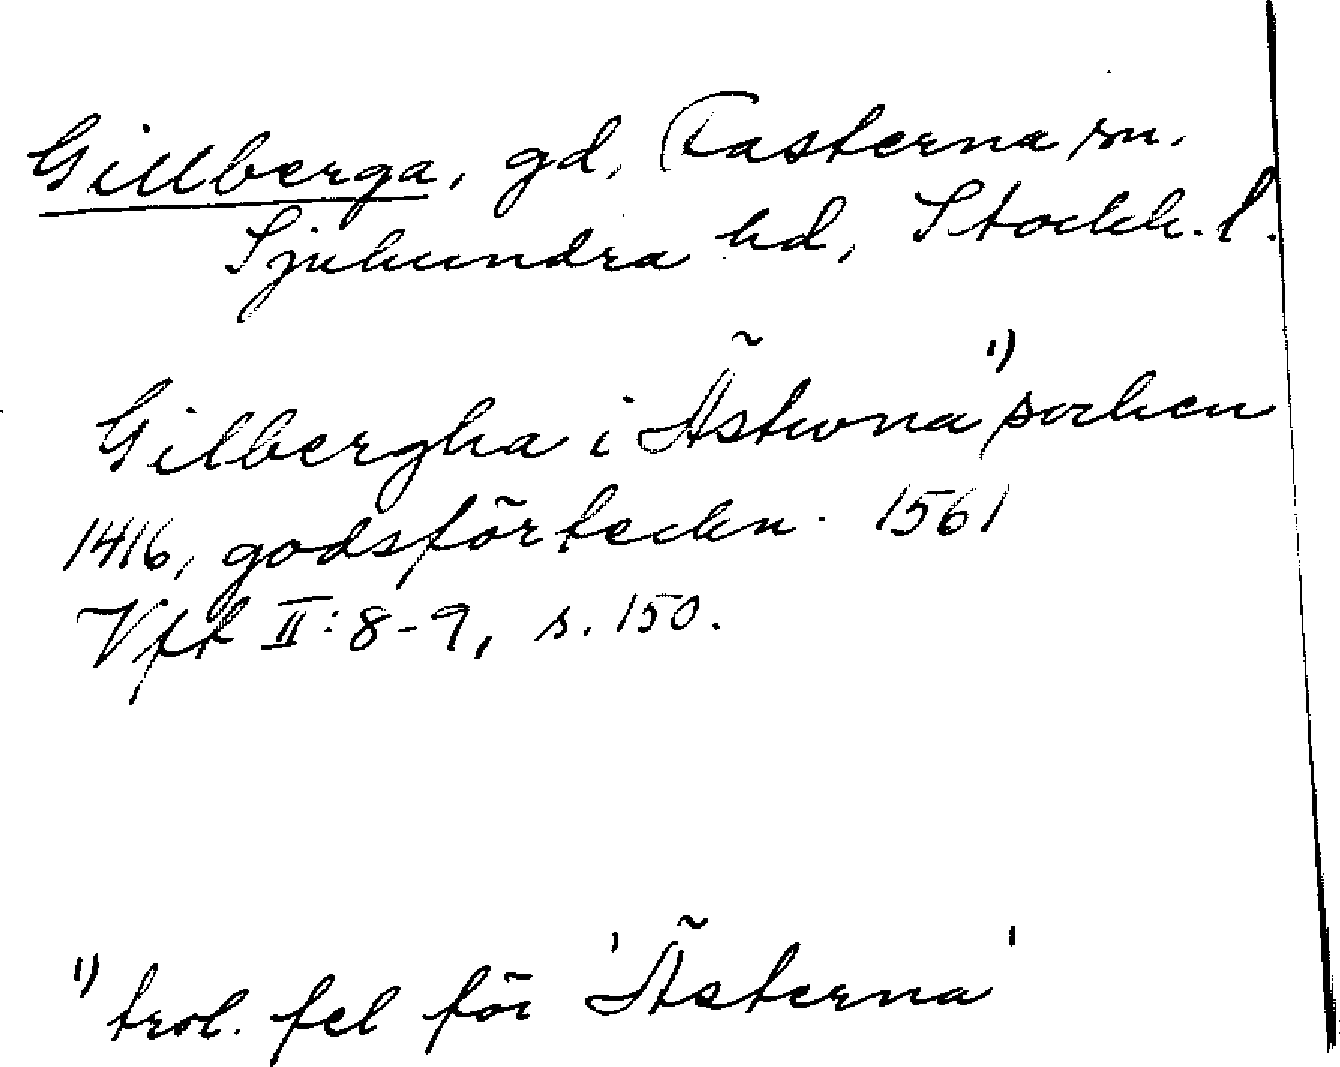 Gillberga, gd, Fasterna sn.
Sjuhundra hd, Stockh. l.
Gilbergha i Ästuona ¹) socken
1416, godsförteckn. 1561
Vfk II:8-9, s. 150.
¹) trol. fel för 'Ästerna'